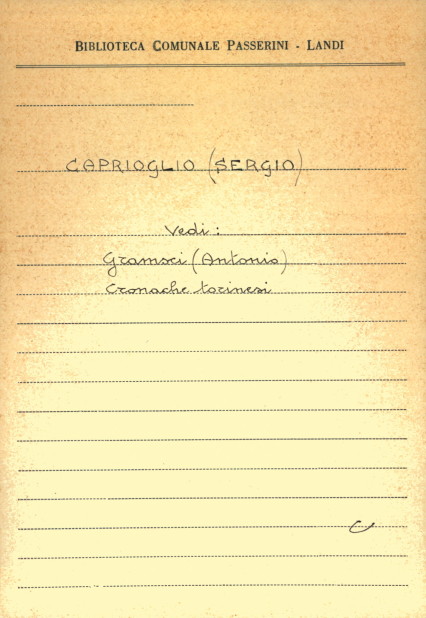 BIBLIOTECA COMUNALE PASSERINI - LANDI
CAPRIOGLIO (SERGIO)
Vedi:
Gramsci (Antonio)
Cronache torinesi
C